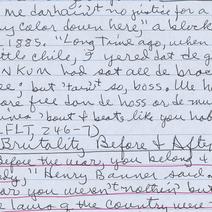 me darhain't no justice for a
ny color down here," a block
. 1885. "Long time ago, when
ttle chile, I yered dat de g
NKUM had sot all de broc
ee; but 'tain't so, boss. We ha
ore free don de hoss or de mu
unna 'bout & beats like you hab
LFLT, 246-7)
Brutality Before & After
Before the war, you belong &
dy," Henry Banner said.
ar you weren't nothin' but
laws of the country wer